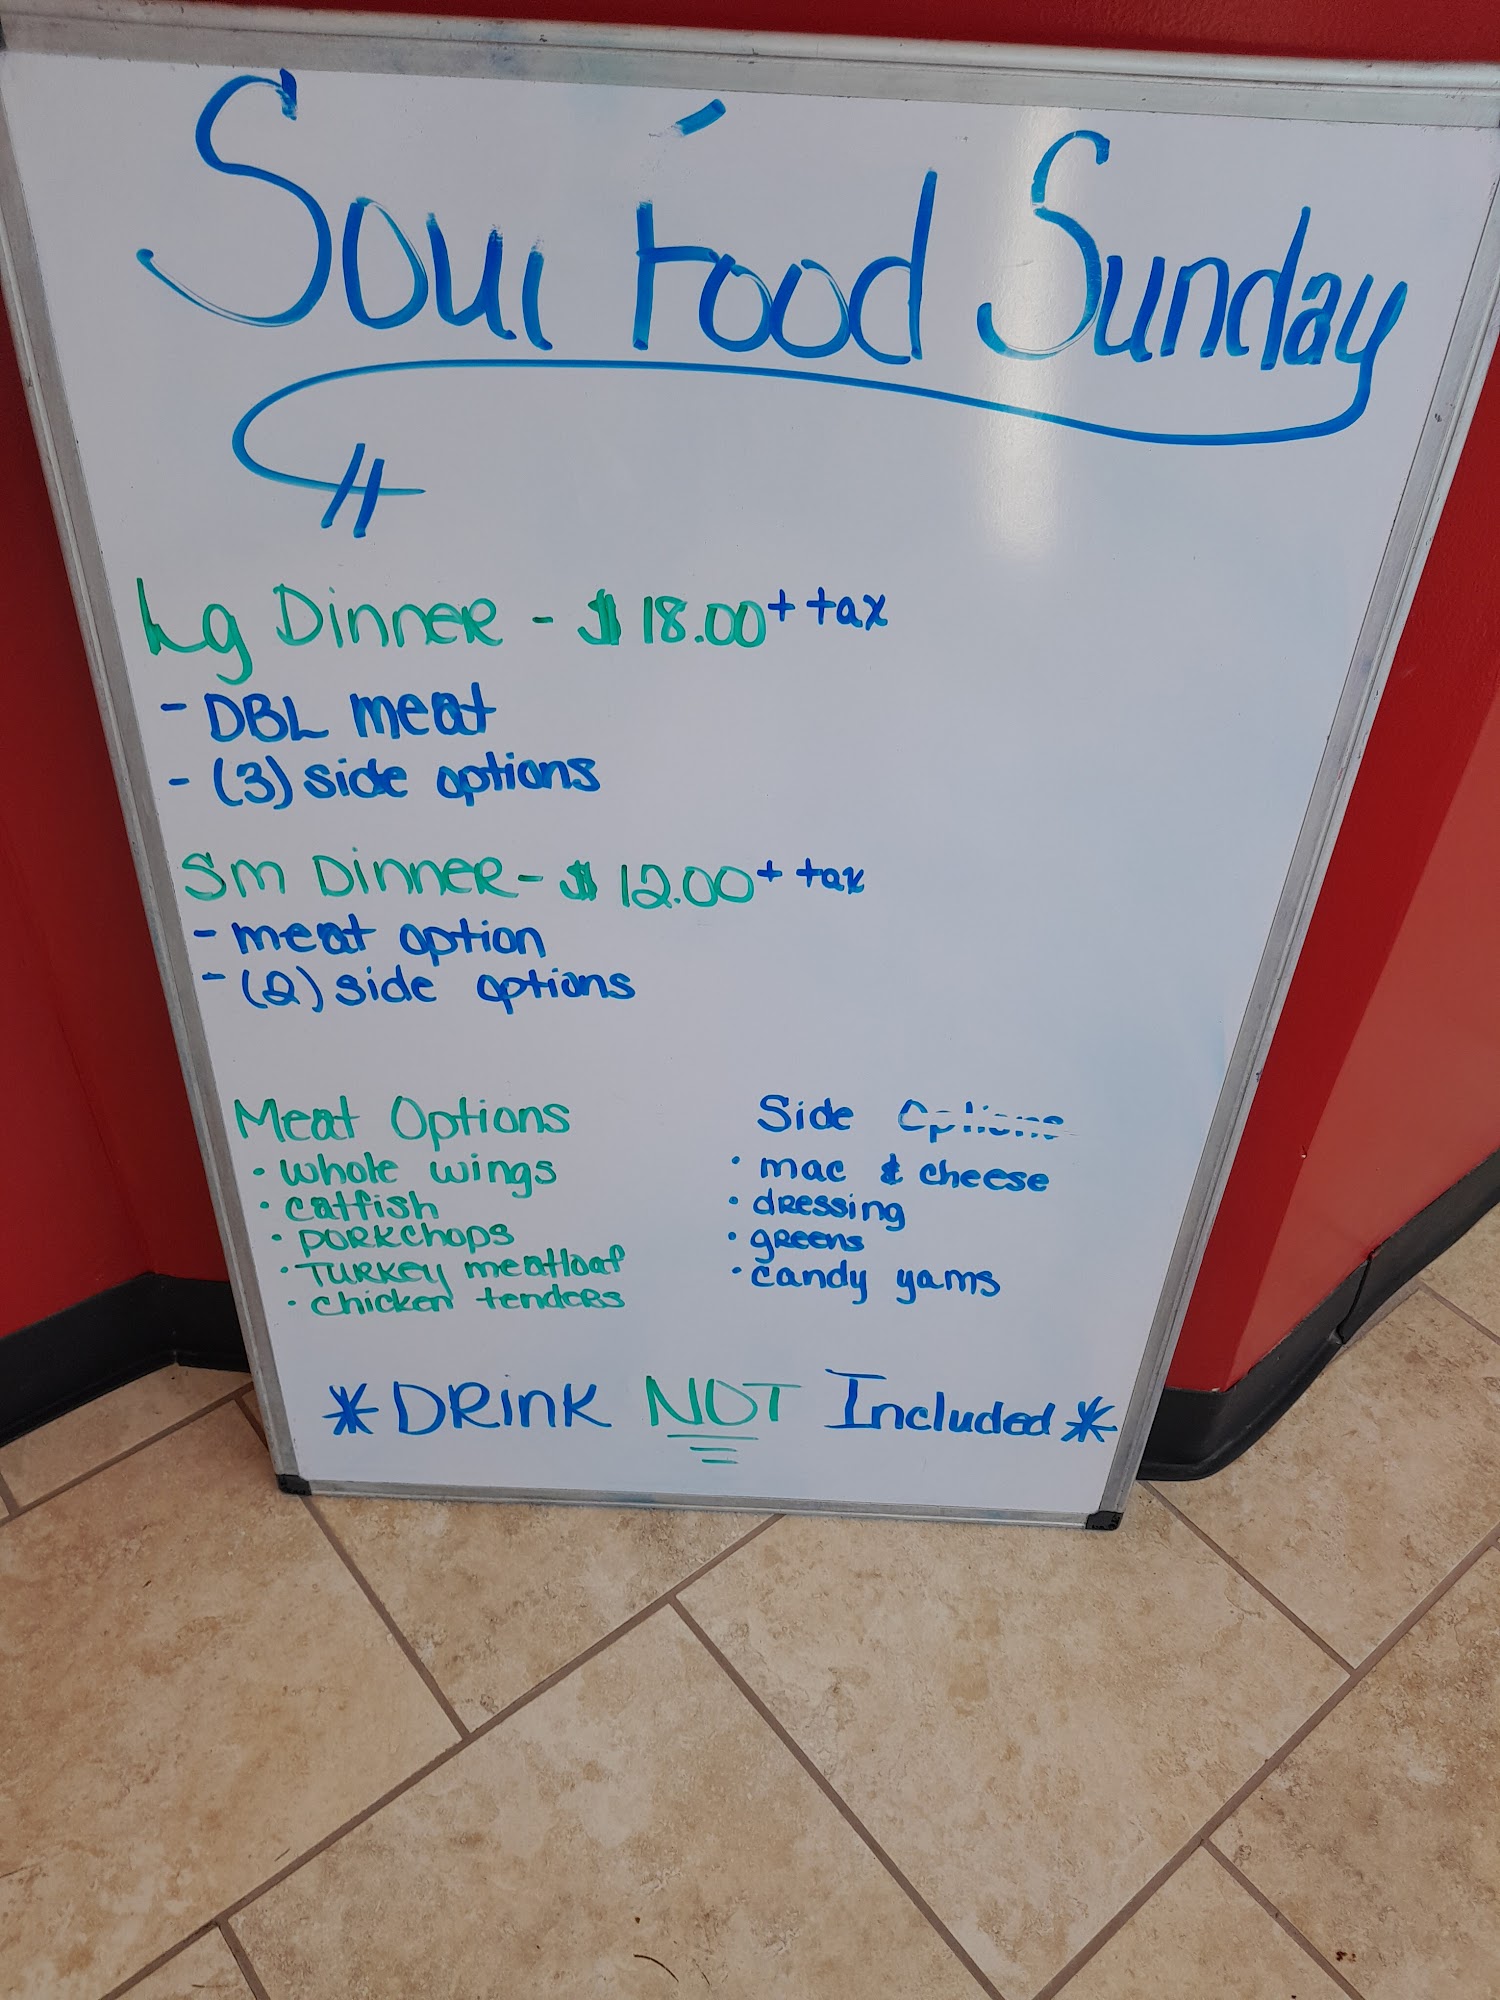 Soul Food Sunday
Lg Dinner - $18.00 + tax
- DBL meat
- (3) side options
Sm Dinner - $12.00 + tax
- meat option
- (2) side options
Meat Options
• whole wings
• catfish
• porkchops
• Turkey meatloaf
• chicken tenders
Side Options
• mac & cheese
• dressing
• greens
• candy yams
* DRINK NOT Included *